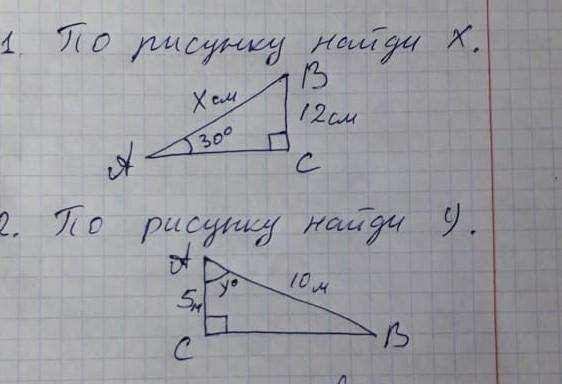 1. По рисунку найди X.
B
X см
12см
30°
A
C
2. По рисунку найди У.
A
y°
10 м
5м
C
B